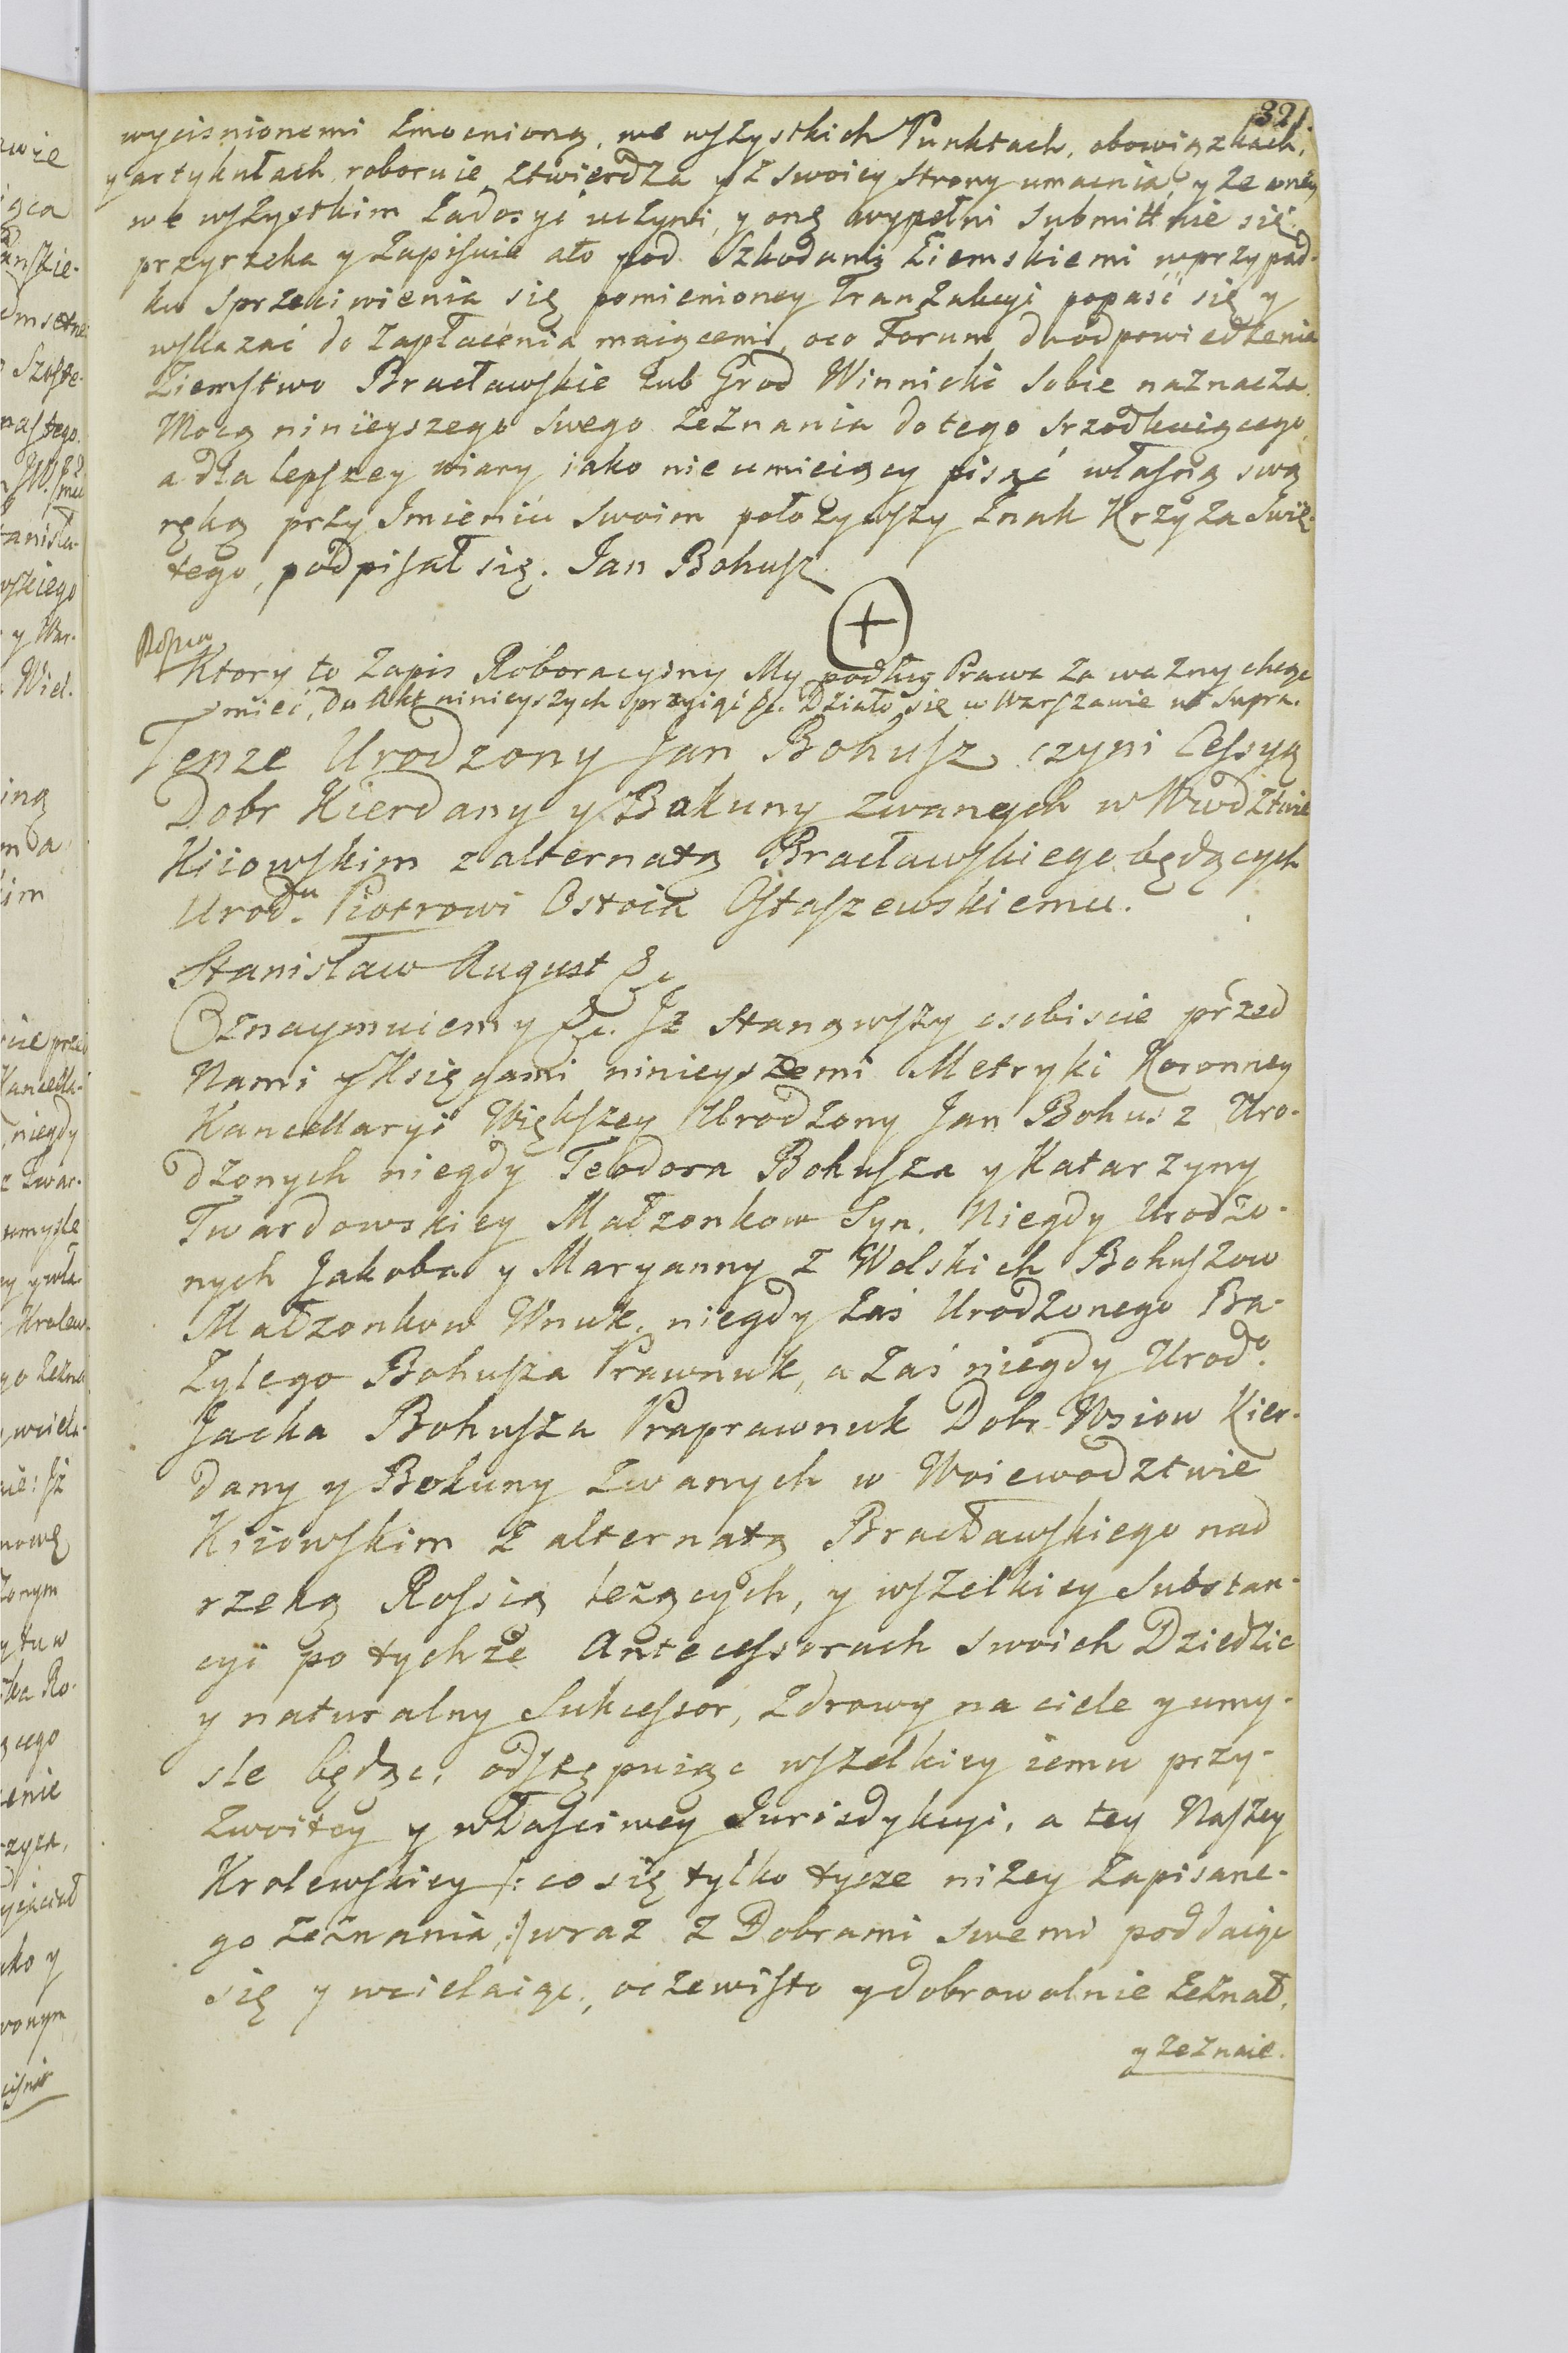 321
wycisnionemi zmocnioną, we wszystkich Punktach, obowiązkach,
y artykułach roboruie ztwierdza y z swoiey strony umacnia y ze oney
we wszystkim zadosyć uczyni, y onę wypełni submittuie się
przyrzeka y zapisuie a to pod Szkodami Ziemskiemi w przypad-
ku sprzeciwienia się pomienioney Tranzakcyi popaść się y
wskazać do zapłacenia maiącemi, oco Forum do odpowiedzenia
Ziemstwo Bracławskie lub Grod Winnicki sobie naznacza
Mocą ninieyszego swego zeznania do tego srzodkuiącego,
a dla lepszey wiary iako nieumieiący pisać własną swą
ręką przy Imieniu swoim położywszy znak Krzyża Swię-
tego, podpisał się. Jan Bohusz
+
Ktory to Zapis Roboracyiny My podług Prawa za ważny chcąc
mieć, do Akt ninieyszych przyiąć &c. Działo się w Warszawie ut supra.
Tenze Urodzony Jan Bohusz czyni Cessyą
Dobr Kierdany y Bakuny zwanych w Wwdztwie
Kiiowskim z alternatą Bracławskiego będących
Urod.u Piotrowi Ostoia Ostaszewskiemu.
Stanisław August &c
Oznaymuiemy &c. Jż stanąwszy osobiscie przed
Nami y Xięgami ninieyszemi Metryki Koronney
Kancellaryi Większey Urodzony Jan Bohusz Uro-
dzonych niegdy Teodora Bohusza y Katarzyny
Twardowskiey Małzonkow Syn, Niegdy Urodzo-
nych Jakoba y Maryanny z Wolskich Bohuszow
Małzonkow Wnuk, niegdy zaś Urodzonego Ba-
zylego Bohusza Prawnuk, a zaś niegdy Urod.o
Jacka Bohusza Praprawnuk Dobr Wsiow Kier-
dany y Bokuny zwanych w Woiewodztwie
Kiiowskim z alternatą Bracławskiego nad
rzeką Rossią leżących, y wszelkiey Substan-
cyi po tychże Antecessorach swoich Dziedzic
y naturalny Sukcessor, zdrowy na ciele y umy-
sle będąc, odstępuiąc wszelkiey iemu przy-
zwoitey y własciwey Jurisdykcyi, a tey Naszey
Krolewskiey /: co się tylko tycze niżey zapisane-
go zeznania :/ wraz z Dobrami swemi poddaiąc
się y wcielaiąc, oczewisto y dobrowolnie zeznał,
y zeznaie.